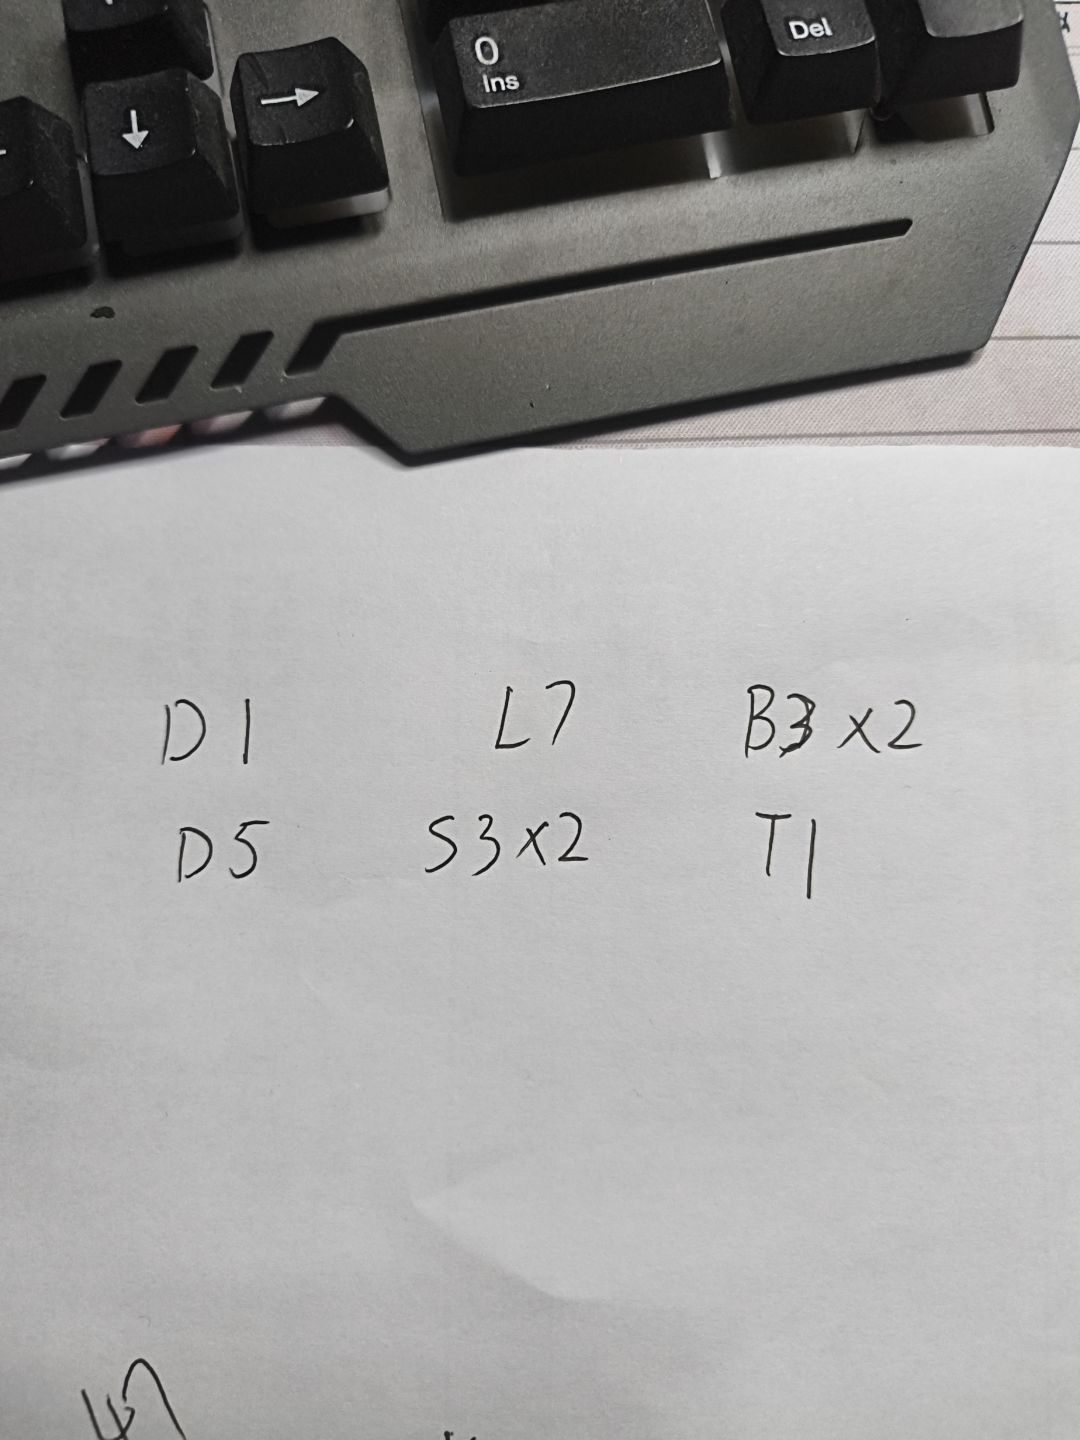 0
Ins
Del
D1 L7 B3 x2
D5 S3x2 T1